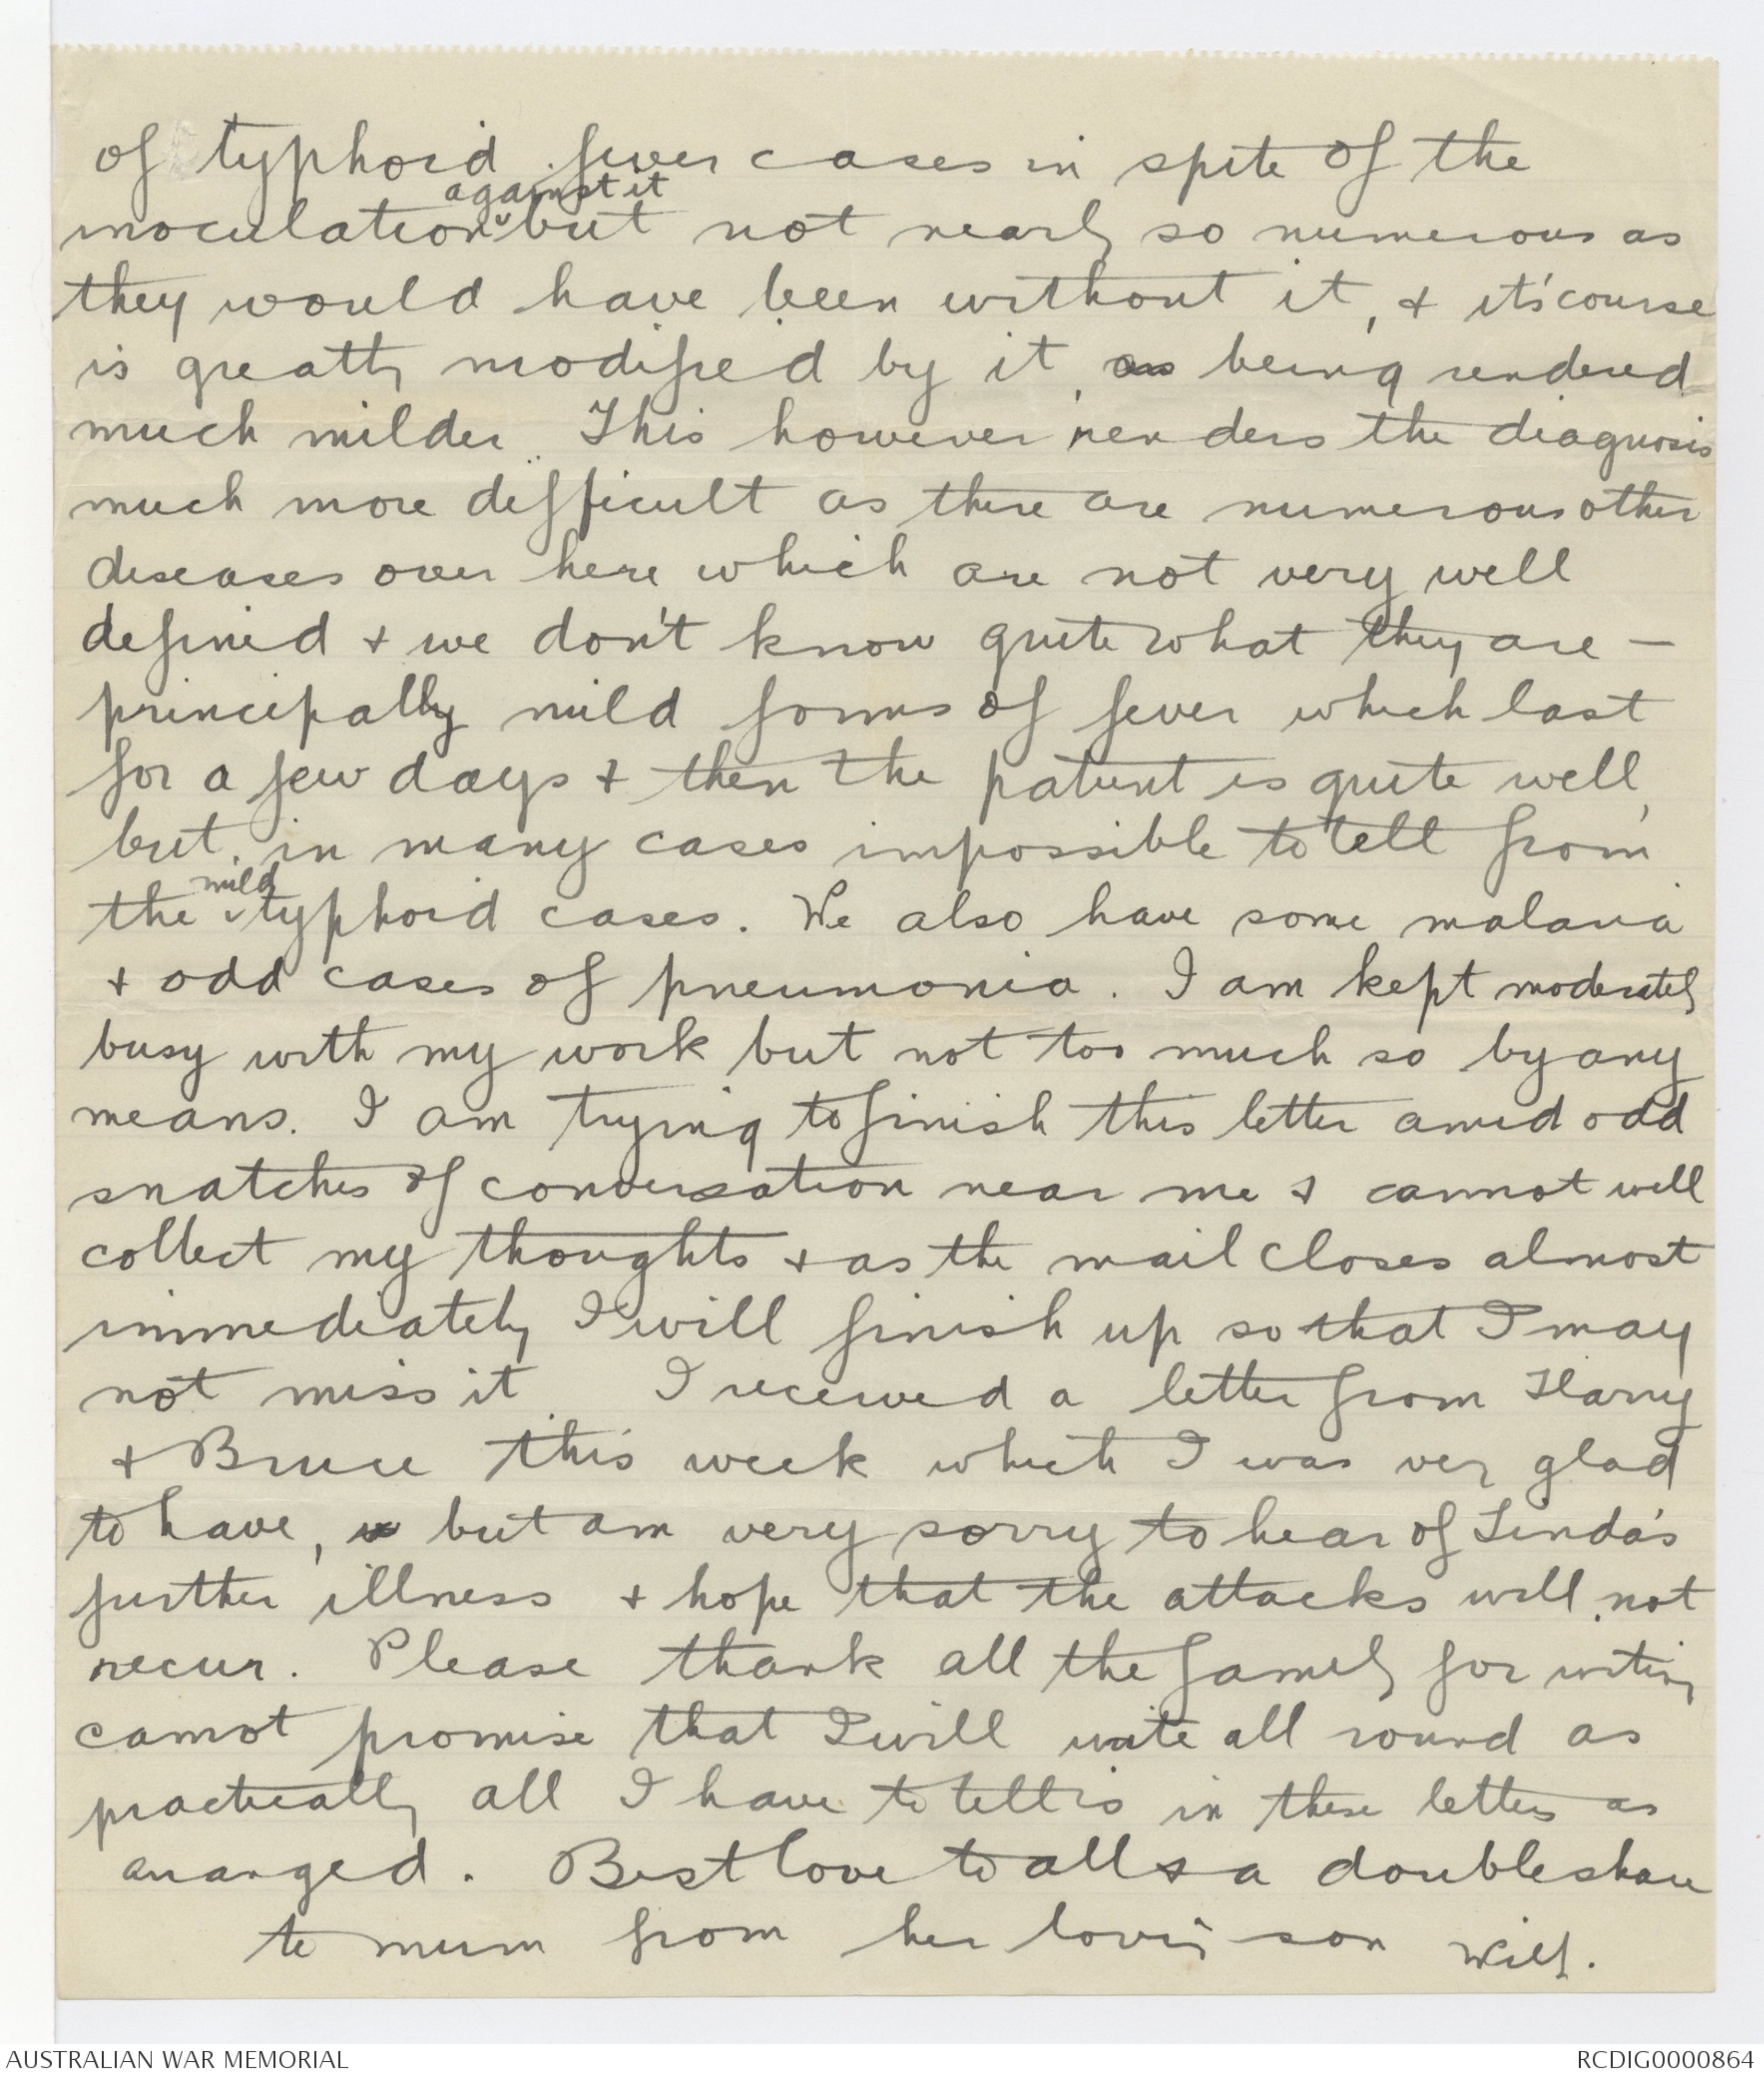 of typhoid fever cases in spite of the
against it
inoculation but not nearly so numerous as
they would have been without it, & it's course
is greatly modified by it, as being rendered
much milder. This however renders the diagnosis
much more difficult as there are numerous other
diseases over here which are not very well
defined & we don't know quite what they are —
principally mild forms of fever which last
for a few days & then the patient is quite well,
but in many cases impossible to tell from
mild
the typhoid cases. We also have some malaria
& odd cases of pneumonia. I am kept moderately
busy with my work but not too much so by any
means. I am trying to finish this letter amid odd
snatches of conversation near me & cannot well
collect my thoughts & as the mail closes almost
immediately I will finish up so that I may
not miss it. I received a letter from Harry
& Bruce this week which I was very glad
to have, but am very sorry to hear of Linda's
further illness & hope that the attacks will not
recur. Please thank all the family for writing
cannot promise that I will write all round as
practically all I have to tell is in these letters as
arranged. Best love to all & a double share
to mum from her loving son Wilf.
AUSTRALIAN WAR MEMORIAL
RCDIG0000864